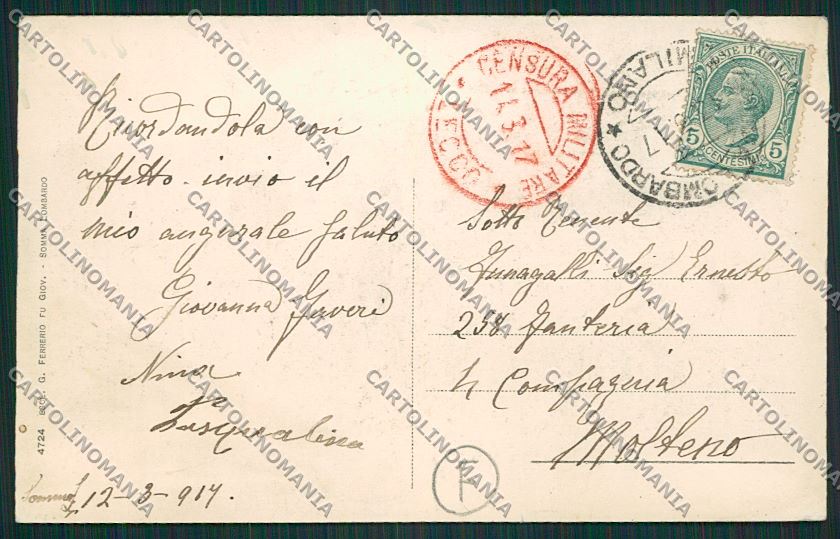 Ricordandola con
affetto invio il
mio augurale saluto
Giovanna Saveri
Nina
Pasqualina
12-3-917.
4724 EDIZ. G. FERRERIO FU GIOV. - SOMMA LOMBARDO
CENSURA MILITARE
14.3.17
LECCO
OMBARDO ★ MILANO
POSTE ITALIANE
5 CENTESIMI 5
Sotto Tenente
Fumagalli Sig Ernesto
258 Fanteria
4 Compageria
Molteno
CARTOLINOMANIA